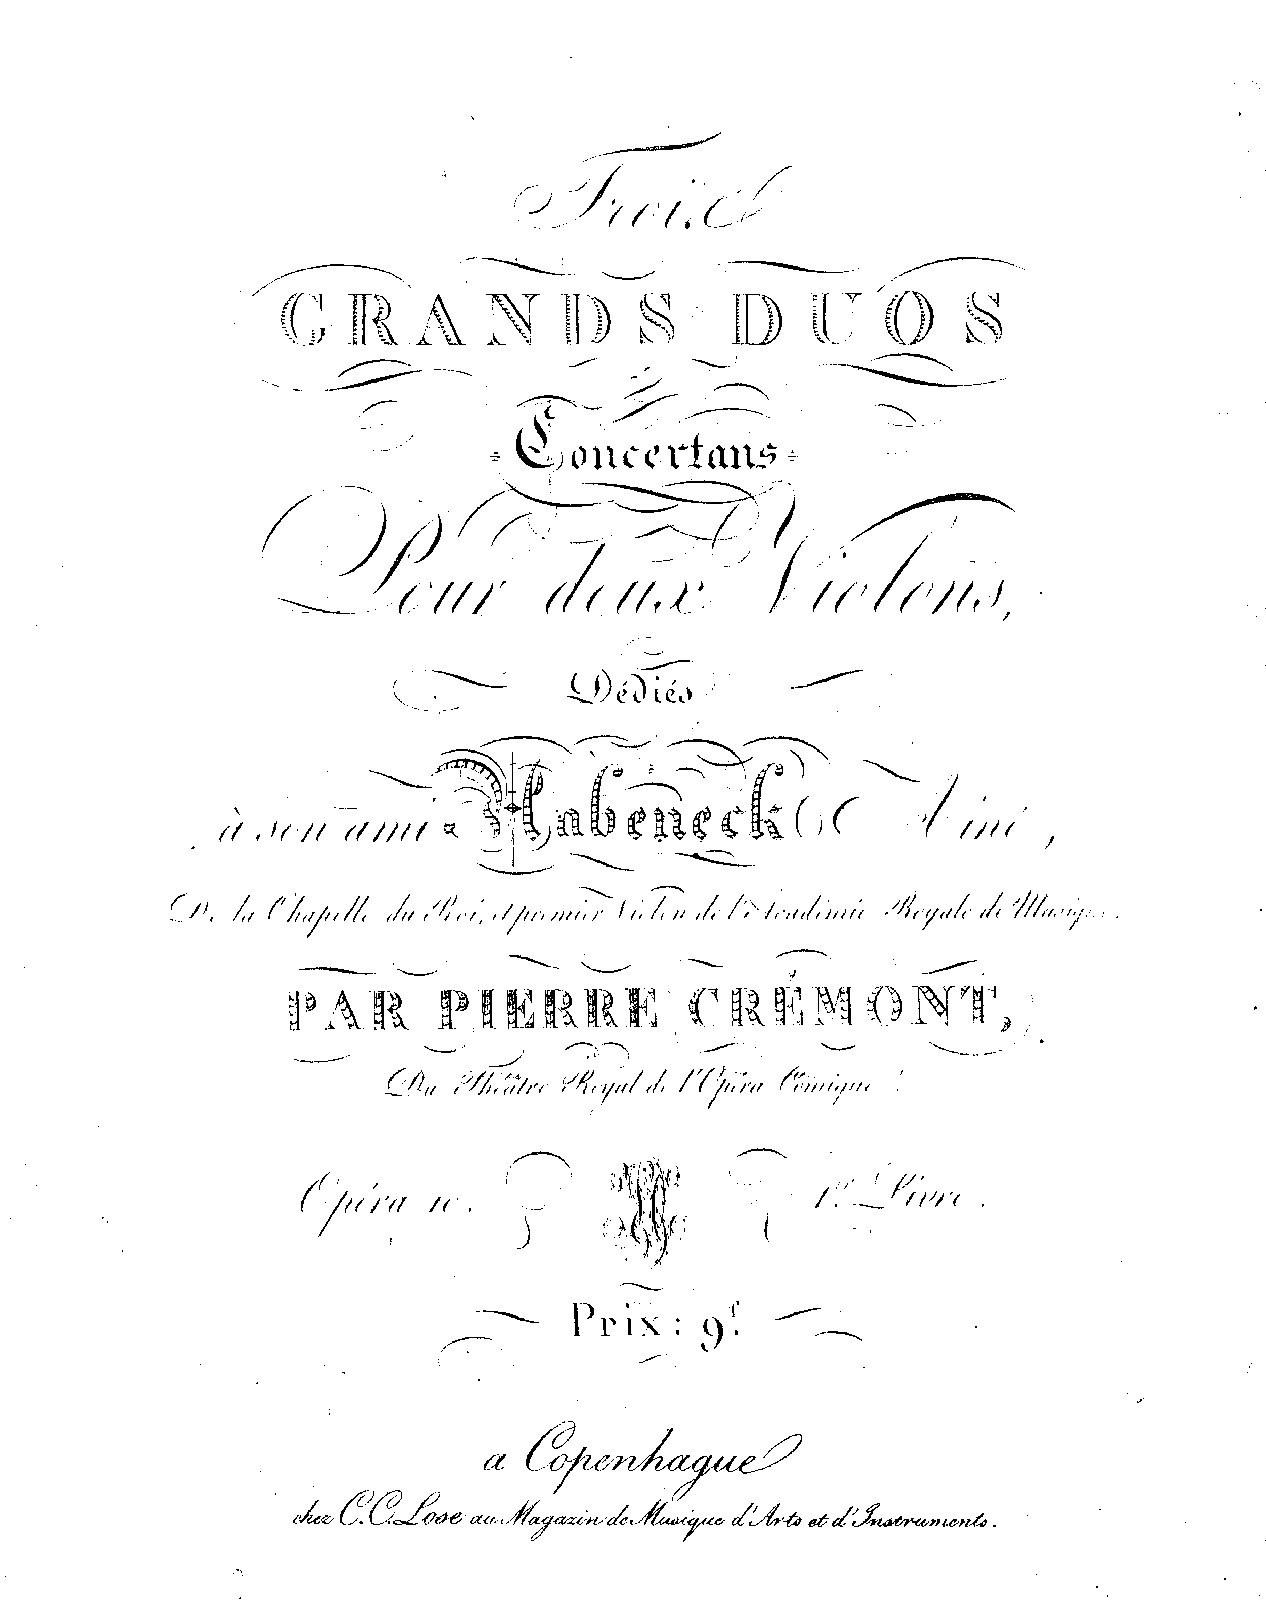 Trois
GRANDS DUOS
Concertans
Pour deux Violons,
Dédiés
à son ami Habeneck Ainé,
De la Chapelle du Roi, et premier Violon de l'Académie Royale de Musique.
PAR PIERRE CRÉMONT,
Du Théâtre Royal de l'Opéra Comique.
Opéra 10. 1er Livre.
Prix: 9f.
a Copenhague
chez C.C. Lose au Magazin de Musique d'Arts et d'Instruments.